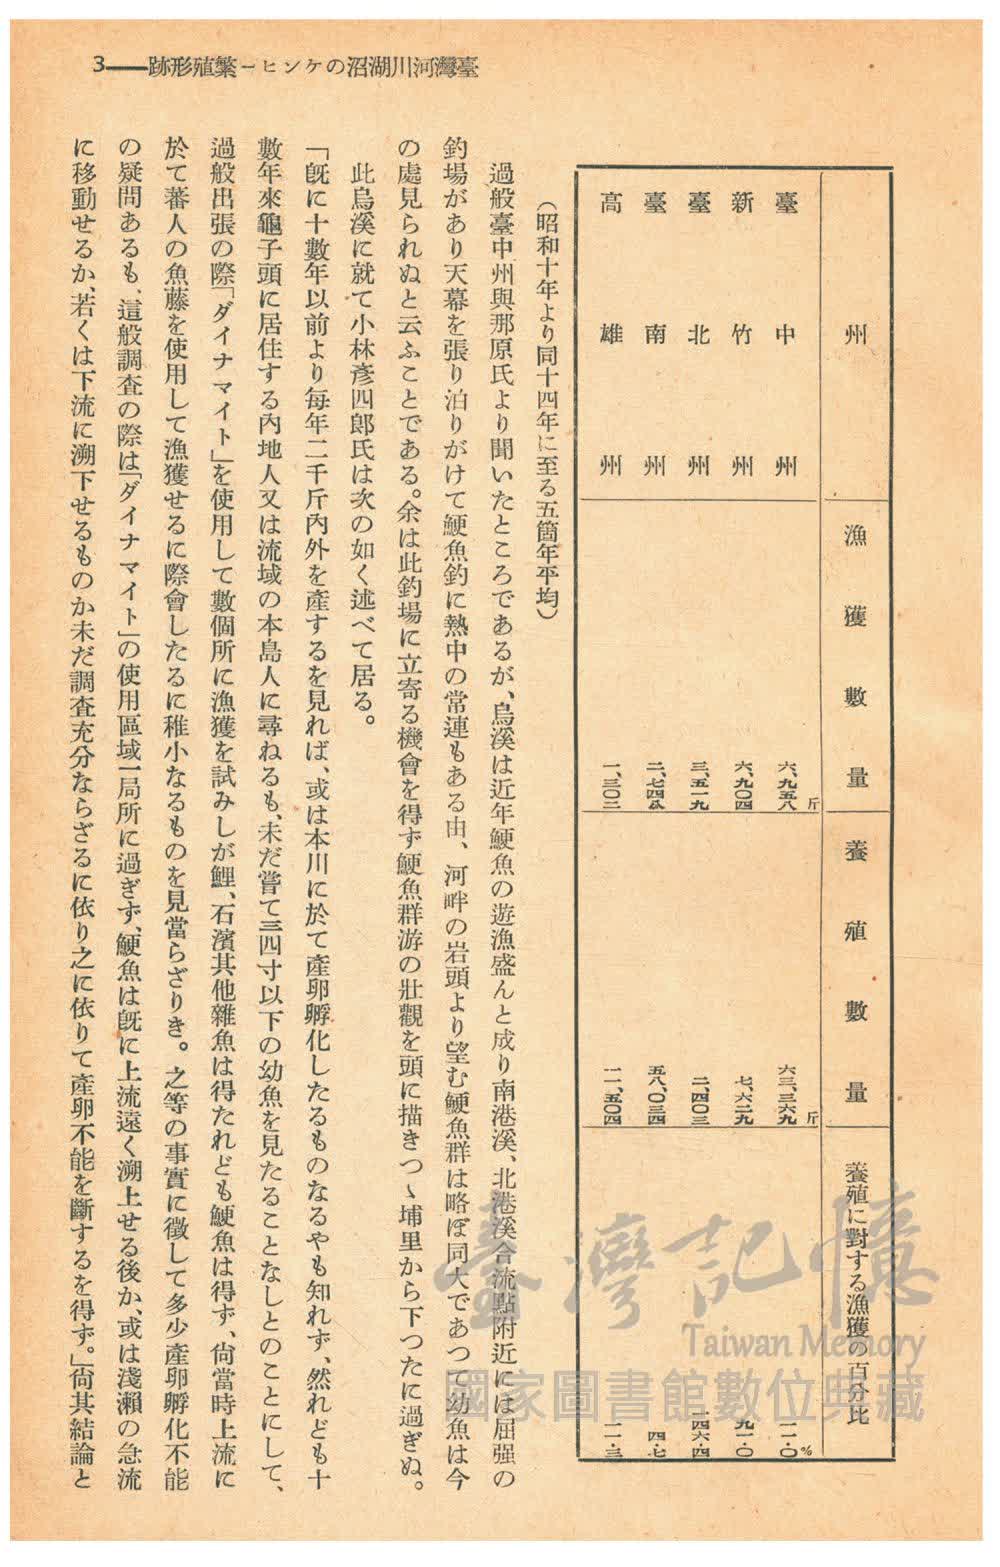 臺灣河川湖沼のケンヒー繁殖形跡——3
州 漁獲數量 養殖數量 養殖に對する漁獲の百分比
臺中州 六、九五八斤 六三、三六九斤 一一・〇%
新竹州 六、九〇四 七、六二九 九一・〇
臺北州 三、五一九 二、四〇三 一四六・四
臺南州 二、七四八 五八、〇三四 四・七
高雄州 一、三〇二 一一、五〇四 一一・三
(昭和十年より同十四年に至る五箇年平均)
過般臺中州與那原氏より聞いたところであるが、烏溪は近年鯁魚の遊漁盛んと成り南港溪、北港溪合流點附近には屈强の
釣場があり天幕を張り泊りがけて鯁魚釣に熱中の常連もある由、河畔の岩頭より望む鯁魚群は略ぼ同大であつて幼魚は今
の處見られぬと云ふことである。余は此釣場に立寄る機會を得ず鯁魚群游の壯觀を頭に描きつゝ埔里から下つたに過ぎぬ。
此烏溪に就て小林彥四郎氏は次の如く述べて居る。
「旣に十數年以前より每年二千斤內外を產するを見れば、或は本川に於て產卵孵化したるものなるやも知れず、然れども十
數年來龜子頭に居住する內地人又は流域の本島人に尋ねるも、未だ嘗て三四寸以下の幼魚を見たることなしとのことにして、
過般出張の際「ダイナマイト」を使用して數個所に漁獲を試みしが鯉、石濱其他雜魚は得たれども鯁魚は得ず、尙當時上流に
於て蕃人の魚藤を使用して漁獲せるに際會したるに稚小なるものを見當らざりき。之等の事實に徵して多少產卵孵化不能
の疑問あるも、這般調査の際は「ダイナマイト」の使用區域一局所に過ぎず、鯁魚は旣に上流遠く溯上せる後か、或は淺瀨の急流
に移動せるか、若くは下流に溯下せるものか未だ調査充分ならざるに依り之に依りて產卵不能を斷するを得ず。」尙其結論と
臺灣記憶
Taiwan Memory
國家圖書館數位典藏